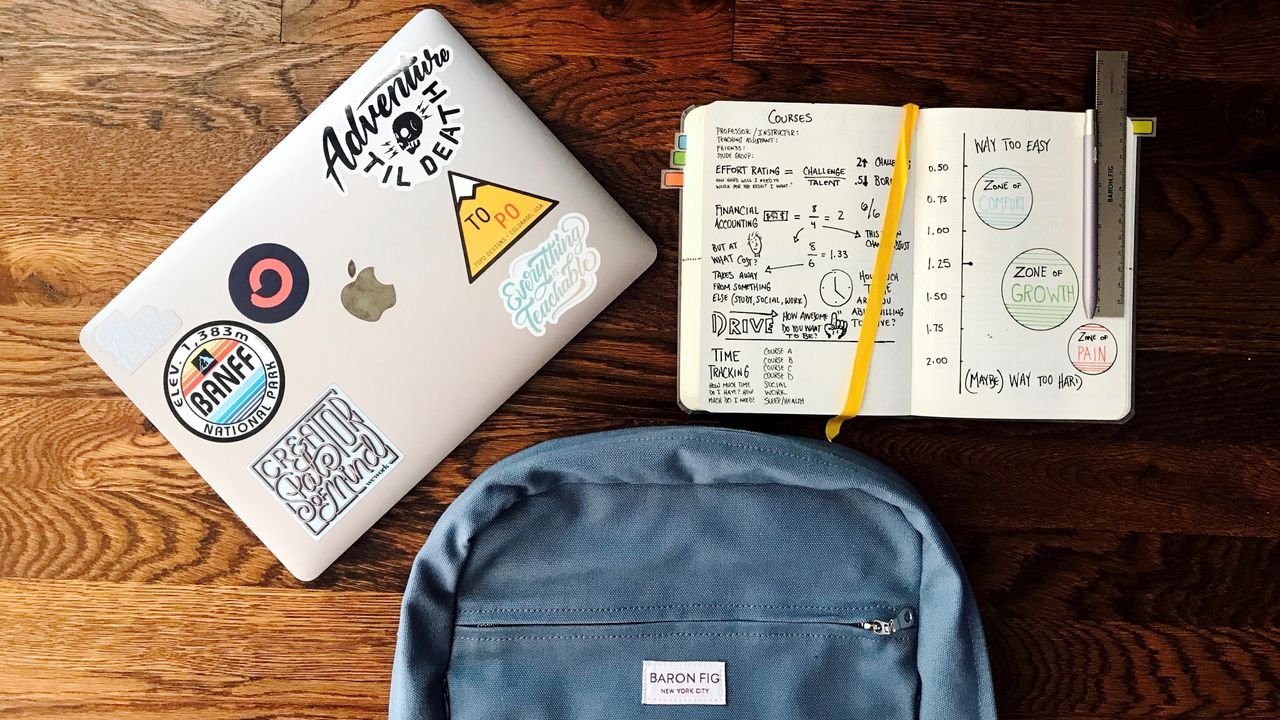 Adventure
TIL DEATH
TO
PO
TOPO DESIGNS • COLORADO, USA
Everything
is
Teachable
ELEV. 1,383m
BANFF
NATIONAL PARK
CREATOR
of
STATE
OF mind
wework
COURSES
PROFESSOR / INSTRUCTOR:
TEACHING ASSISTANT:
FRIENDS:
STUDY GROUP:
EFFORT RATING = CHALLENGE
TALENT
HOW HARD WILL I NEED TO
WORK FOR THE RESULT I WANT?
2↑
.5↓
FINANCIAL
ACCOUNTING
= 8/4 = 2
6/6
BUT AT
WHAT COST?
8/6 = 1.33
TAKES AWAY
FROM SOMETHING
ELSE (STUDY, SOCIAL, WORK)
DRIVE
HOW AWESOME
DO YOU WANT
TO BE?
TIME
TRACKING
HOW MUCH TIME
DO I HAVE? HOW
MUCH DO I NEED?
COURSE A
COURSE B
COURSE C
COURSE D
SOCIAL
WORK
SLEEP/HEALTH
WAY TOO EASY
0.50
0.75
1.00
1.25
1.50
1.75
2.00
ZONE OF
COMFORT
ZONE OF
GROWTH
ZONE OF
PAIN
(MAYBE) WAY TOO HARD
BARON FIG
BARON FIG
NEW YORK CITY